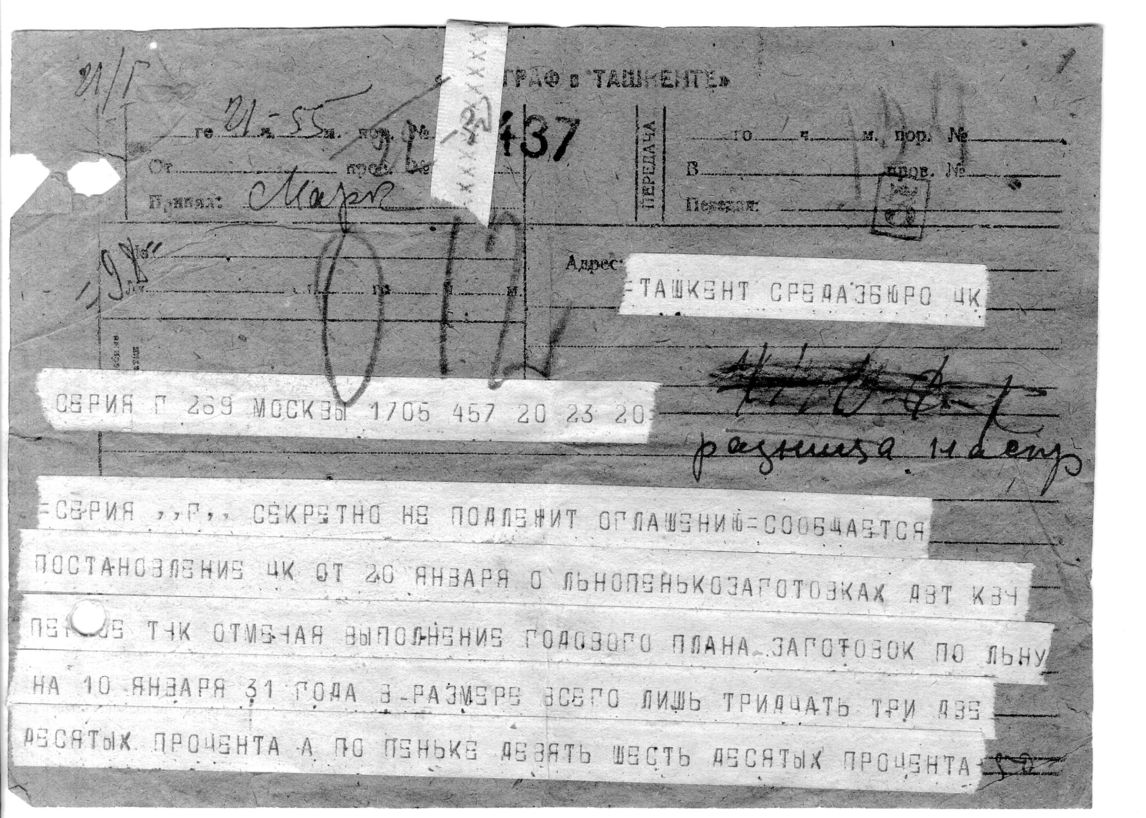 21/I
ГРАФ в ТАШКЕНТЕ»
1
го 21 ч. 55 м. пор. №
437
ПЕРЕДАЧА
го ч. м. пор. №
От пров. №
В пров. №
Принял: Марк
Передал:
012
Адрес:
=ТАШКЕНТ СРЕДАЗБЮРО ЦК
СЕРИЯ Г 269 МОСКВЫ 1705 457 20 23 20=
разница настр
=СЕРИЯ ,,Г,, СЕКРЕТНО НЕ ПОДЛЕЖИТ ОГЛАШЕНИЮ=СООБЩАЕТСЯ
ПОСТАНОВЛЕНИЕ ЦК ОТ 20 ЯНВАРЯ О ЛЬНОПЕНЬКОЗАГОТОВКАХ ДВТ КВЧ
ПЕРВОЕ ТЧК ОТМЕЧАЯ ВЫПОЛНЕНИЕ ГОДОВОГО ПЛАНА ЗАГОТОВОК ПО ЛЬНУ
НА 10 ЯНВАРЯ 31 ГОДА В РАЗМЕРЕ ВСЕГО ЛИШЬ ТРИДЦАТЬ ТРИ ДВЕ
ДЕСЯТЫХ ПРОЦЕНТА А ПО ПЕНЬКЕ ДЕВЯТЬ ШЕСТЬ ДЕСЯТЫХ ПРОЦЕНТА